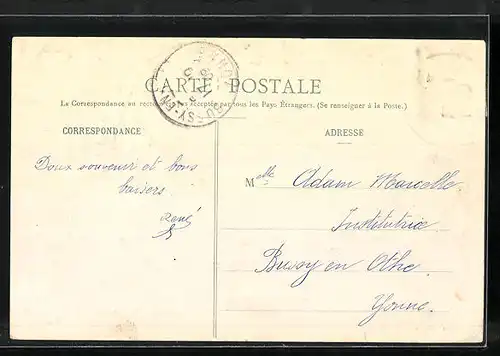 CARTE POSTALE
La Correspondance au recto n'est pas acceptée par tous les Pays Étrangers. (Se renseigner à la Poste.)
CORRESPONDANCE
ADRESSE
Doux souvenir et bons
baisers
René
Melle Adam Marcelle
Institutrice
Bussy en Othe.
Yonne.